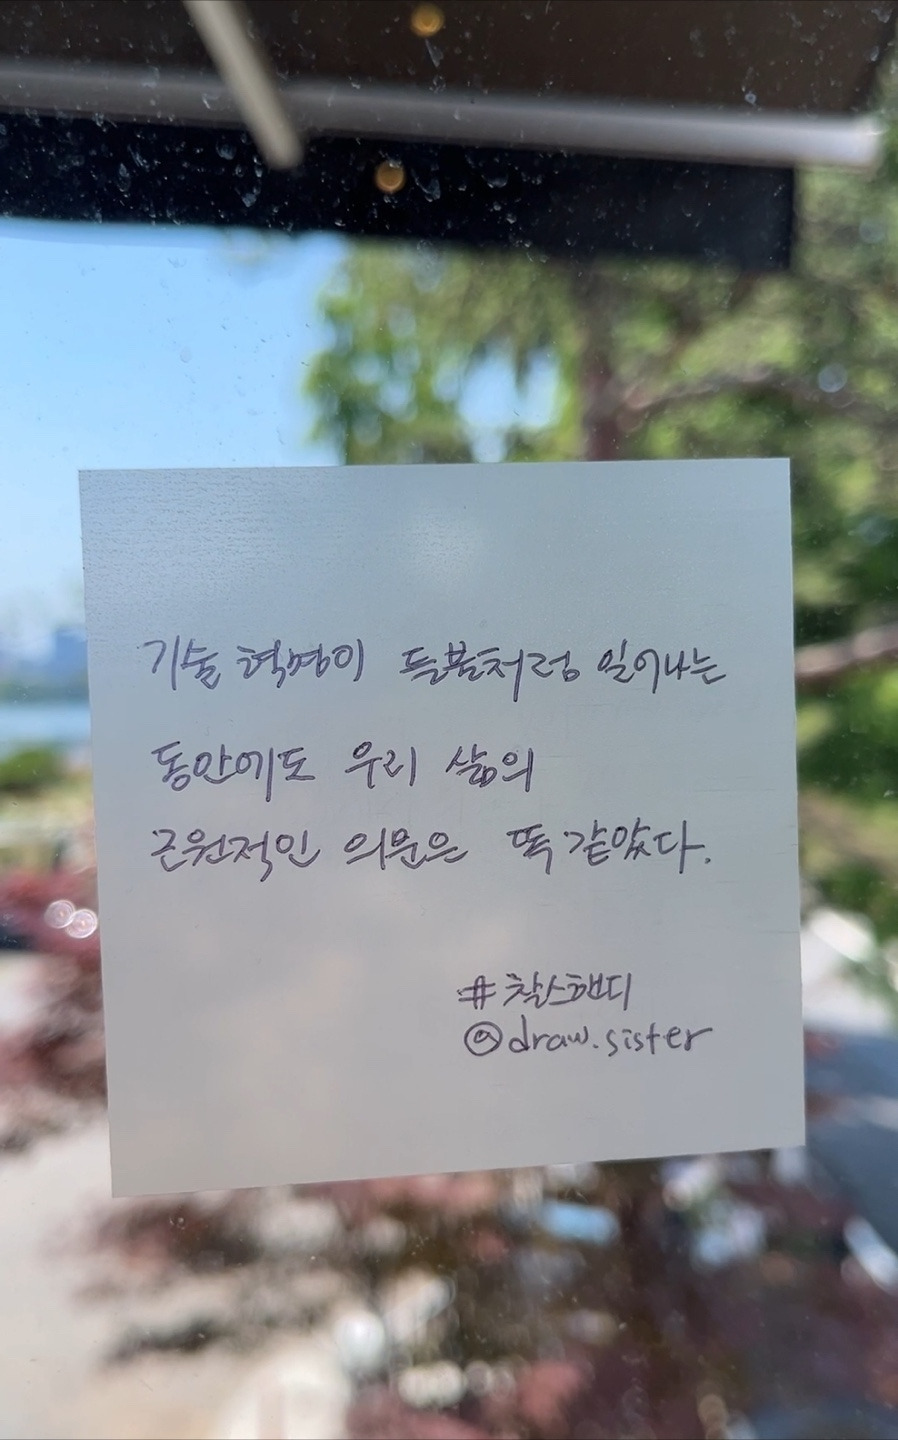 기술 혁명이 들불처럼 일어나는
동안에도 우리 삶의
근원적인 의문은 똑같았다.
#찰스핸디
@draw.sister